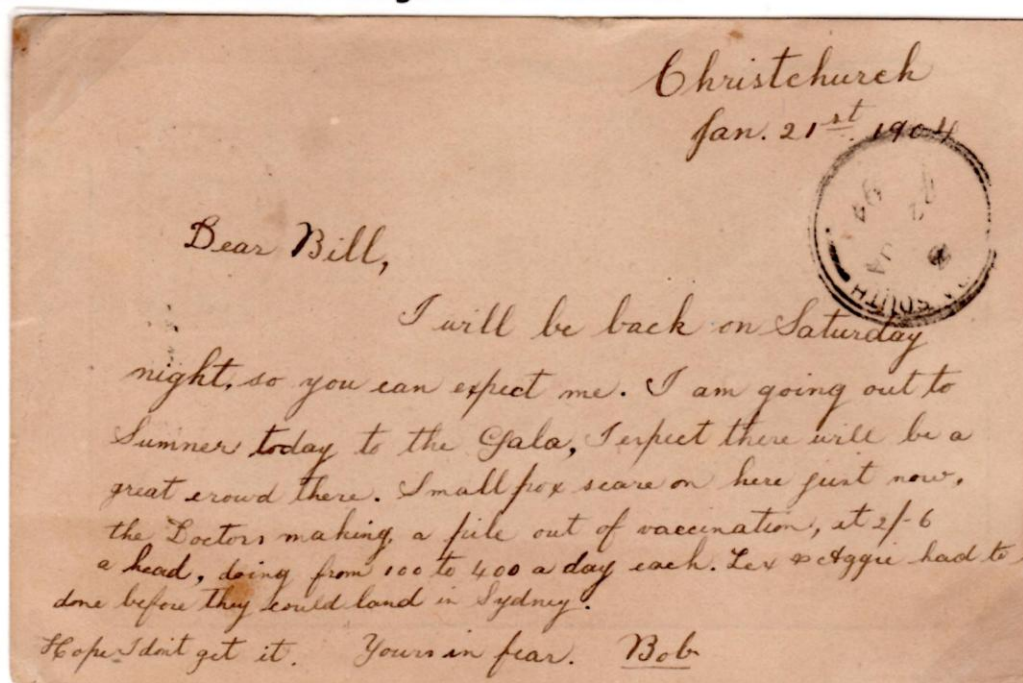 Christchurch
Jan. 21st 1904
Dear Bill,
I will be back on Saturday
night, so you can expect me. I am going out to
Sumner today to the Gala, I expect there will be a
great crowd there. Small pox scare on here just now,
the Doctors making, a pile out of vaccination, at 2/-6
a head, doing from 100 to 400 a day each. Lex & Aggie had to
done before they could land in Sydney.
Hope I don't get it. Yours in fear. Bob
SOUTH